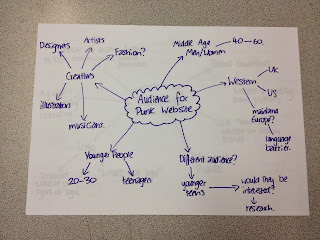 Designers
Artists
Fashion?
Creatives
illustrators
musicians.
Middle Age
Men/Women
40-60.
Western
UK
US
mainland
Europe?
language
barrier.
Audience for
Punk Website
Younger People
20-30
teenagers
Different audience?
younger
teens
would they be
interested?
research.